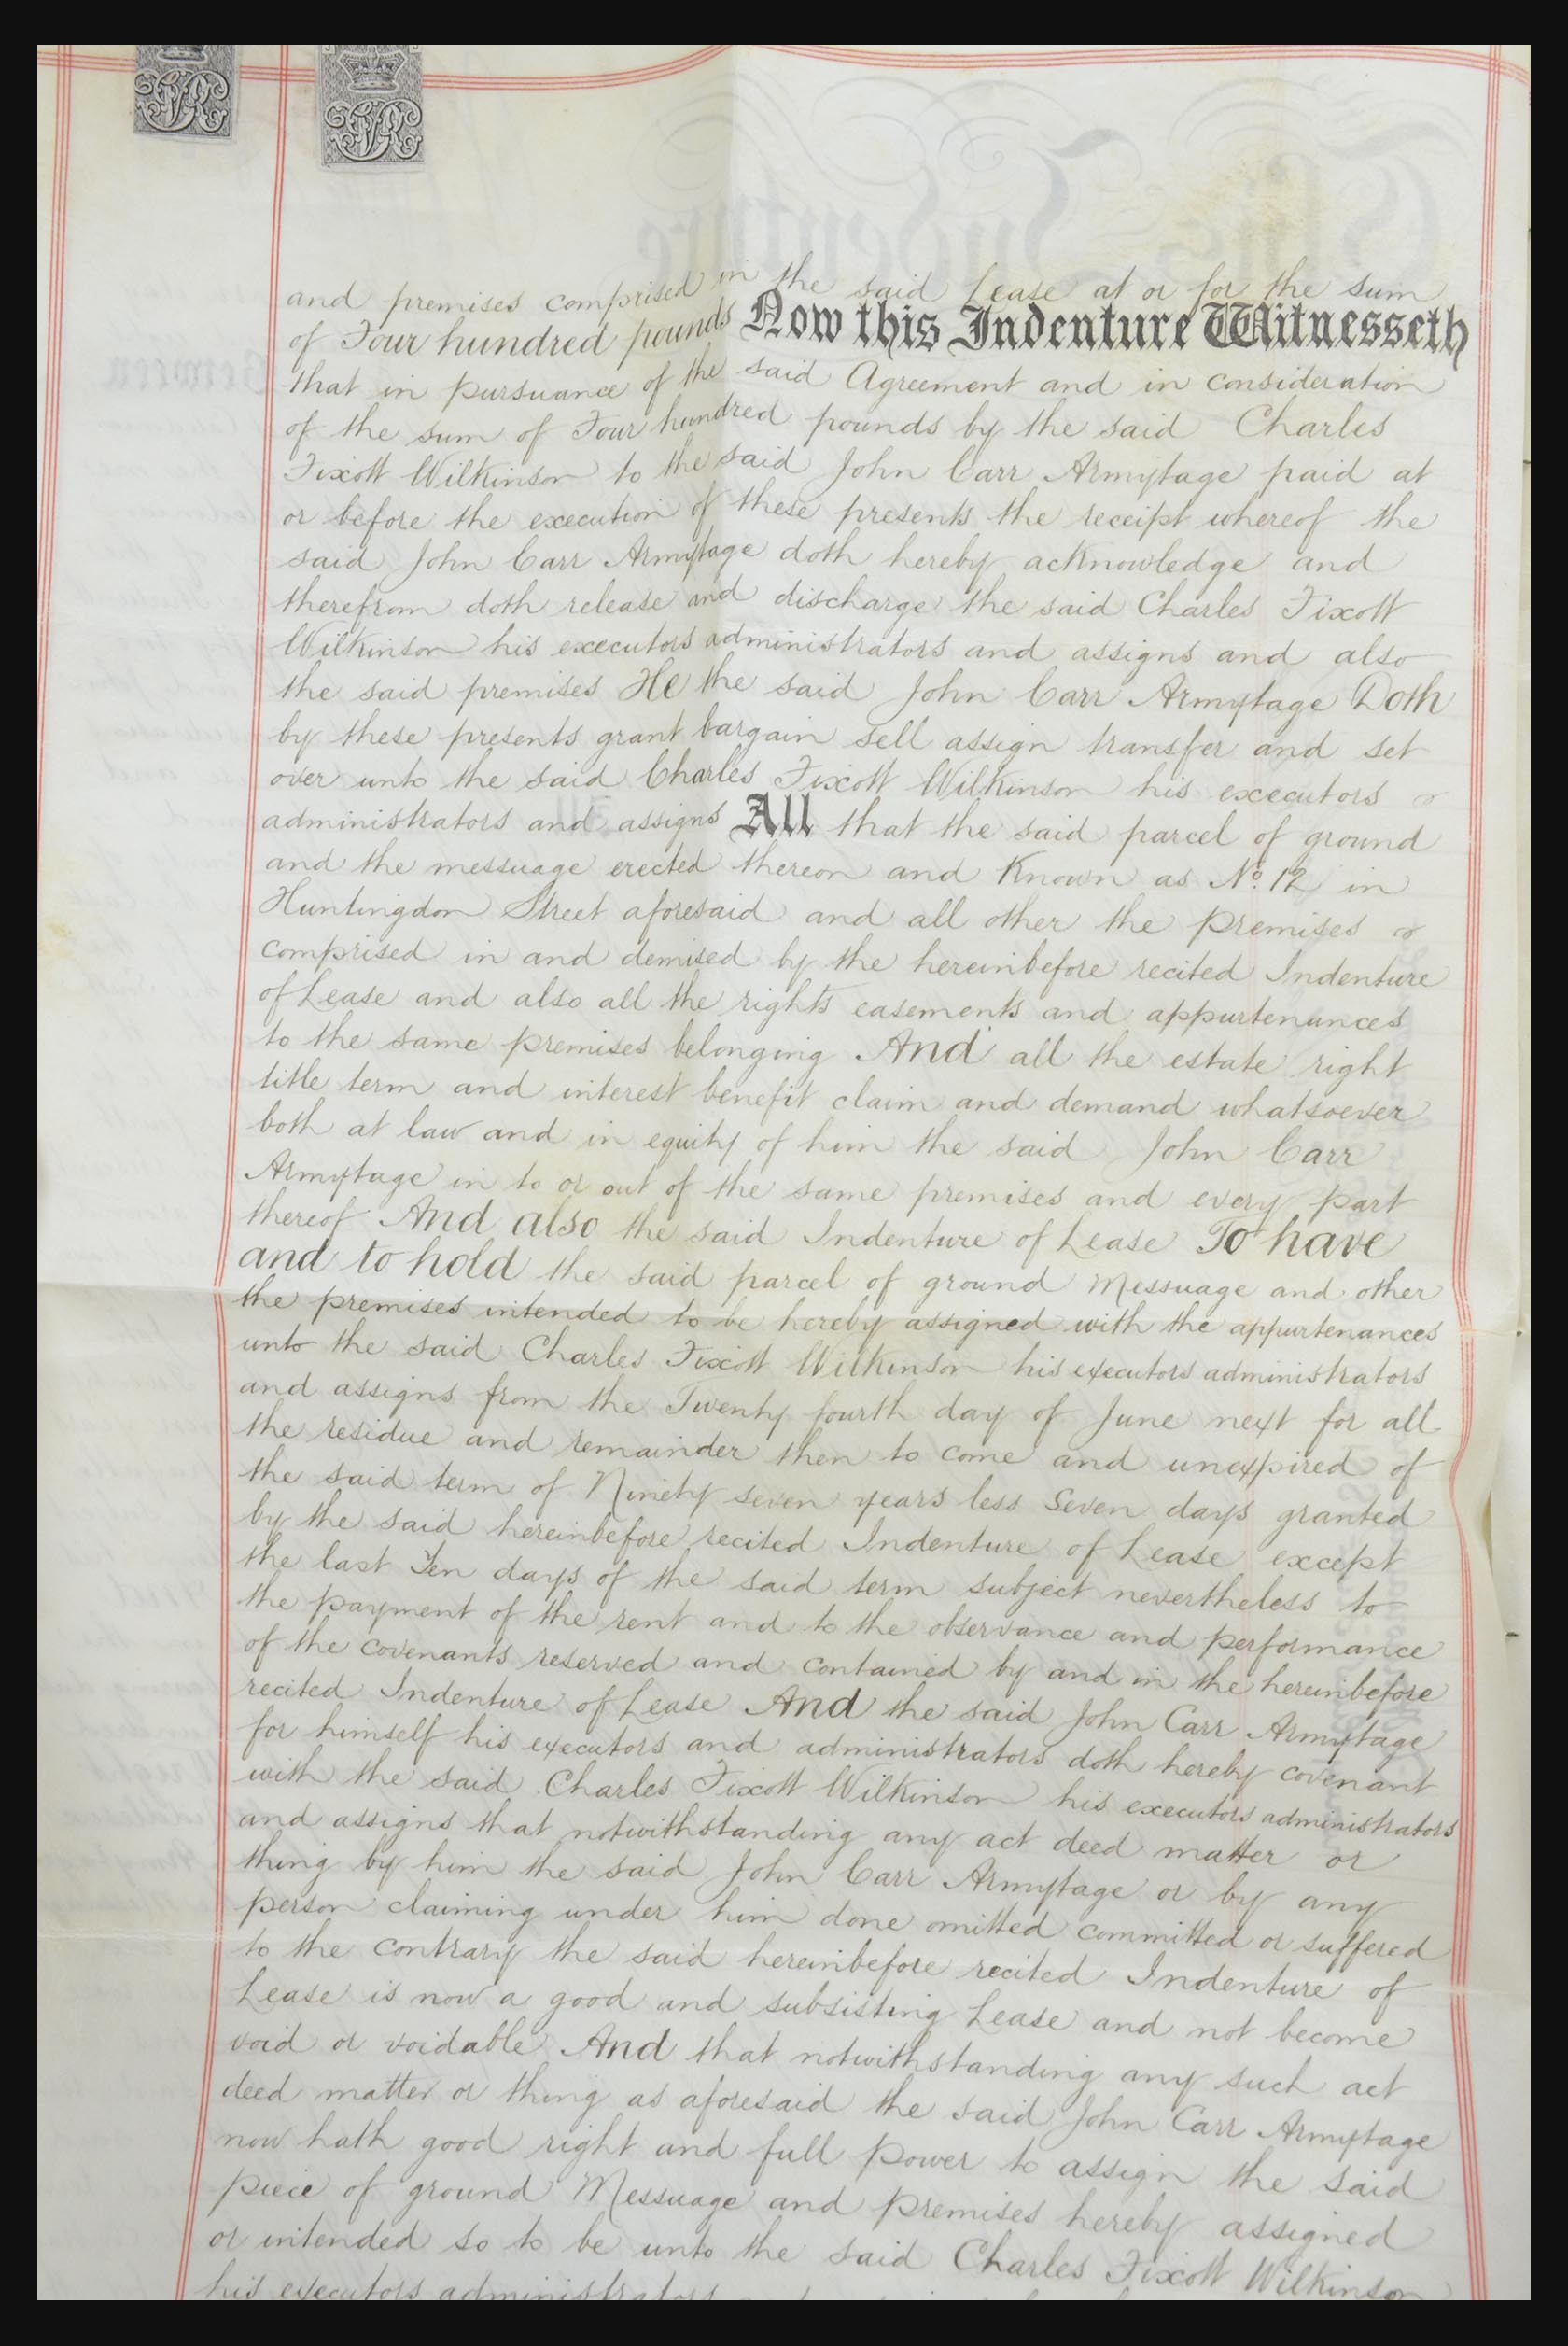 and premises comprised in the said Lease at or for the sum
of Four hundred pounds Now this Indenture Witnesseth
that in pursuance of the said Agreement and in consideration
of the sum of Four hundred pounds by the said Charles
Fixott Wilkinson to the said John Carr Armytage paid at
or before the execution of these presents the receipt whereof the
said John Carr Armytage doth hereby acknowledge and
therefrom doth release and discharge the said Charles Fixott
Wilkinson his executors administrators and assigns and also
the said premises He the said John Carr Armytage Doth
by these presents grant bargain sell assign transfer and set
over unto the said Charles Fixott Wilkinson his executors
administrators and assigns All that the said parcel of ground
and the messuage erected thereon and Known as No. 12 in
Huntingdon Street aforesaid and all other the premises
comprised in and demised by the hereinbefore recited Indenture
of Lease and also all the rights easements and appurtenances
to the same premises belonging And all the estate right
title term and interest benefit claim and demand whatsoever
both at law and in equity of him the said John Carr
Armytage in to or out of the same premises and every part
thereof And also the said Indenture of Lease To have
and to hold the said parcel of ground Messuage and other
the premises intended to be hereby assigned with the appurtenances
unto the said Charles Fixott Wilkinson his executors administrators
and assigns from the Twenty fourth day of June next for all
the residue and remainder then to come and unexpired of
the said term of Ninety seven years less Seven days granted
by the said hereinbefore recited Indenture of Lease except
the last Ten days of the said term subject nevertheless to
the payment of the rent and to the observance and performance
of the covenants reserved and contained by and in the hereinbefore
recited Indenture of Lease And the said John Carr Armytage
for himself his executors and administrators doth hereby covenant
with the said Charles Fixott Wilkinson his executors administrators
and assigns that notwithstanding any act deed matter or
thing by him the said John Carr Armytage or by any
person claiming under him done omitted committed or suffered
to the contrary the said hereinbefore recited Indenture of
Lease is now a good and subsisting Lease and not become
void or voidable And that notwithstanding any such act
deed matter or thing as aforesaid the said John Carr Armytage
now hath good right and full power to assign the said
piece of ground Messuage and premises hereby assigned
or intended so to be unto the said Charles Fixott Wilkinson
his executors administrators